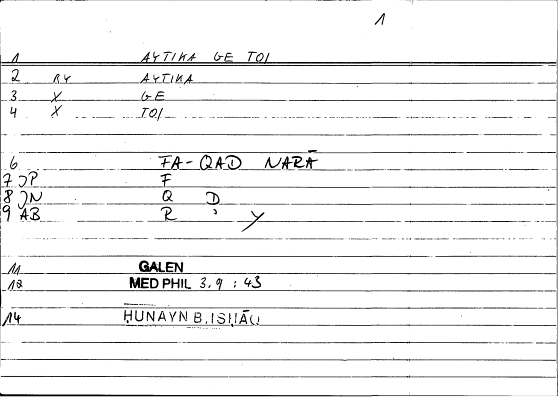 1
1 AYTIKA GE TOI
2 RY AYTIKA
3 Y GE
4 X TOI
6 FA-QAD NARĀ
7 JP F
8 JN Q D
9 AB R ' Y
11 GALEN
12 MED PHIL 3.9 : 43
14 ḤUNAYN B.ISḤĀQ